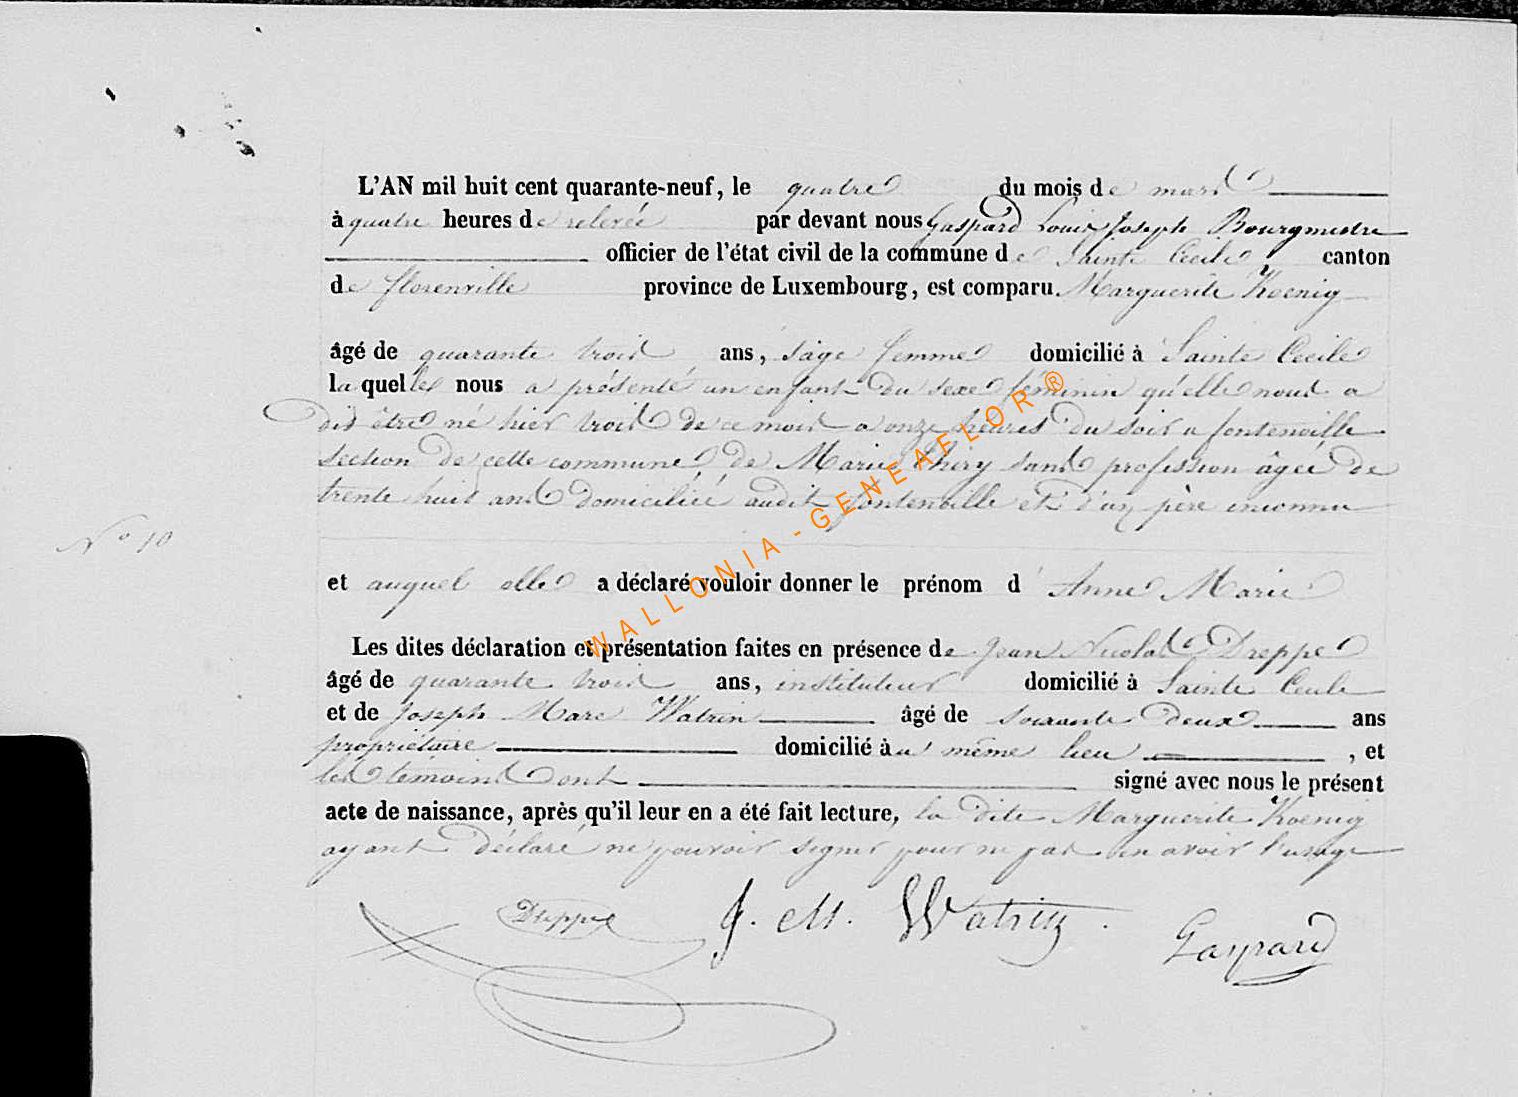 L'AN mil huit cent quarante-neuf, le quatre du mois de mars
à quatre heures de relevée par devant nous Gaspard Louis Joseph Bourgmestre
officier de l'état civil de la commune de Sainte Cecile canton
de florenville province de Luxembourg, est comparu Marguerite Koenig
âgé de quarante trois ans, sage femme domicilié à Sainte Cecile
laquelle nous a présenté un enfant du sexe féminin qu'elle nous a
dit être né hier trois de ce mois a onze heures du soir a fontenoille
section de cette commune, de Marie thiry sans profession âgée de
trente huit ans domiciliée audit fontenoille et d'un père inconnu
N° 10
et auquel elle a déclaré vouloir donner le prénom d'Anne Marie
Les dites déclaration et présentation faites en présence de Jean Nicolas Dreppe
âgé de quarante trois ans, instituteur domicilié à Sainte Cecile
et de Joseph Marc Watrin âgé de soixante deux ans
propriétaire domicilié au même lieu, et
les témoins ont signé avec nous le présent
acte de naissance, après qu'il leur en a été fait lecture, la dite Marguerite Koenig
ayant déclaré ne pouvoir signer pour ne pas en avoir l'usage
Dreppe J. M. Watrin. Gaspard
WALLONIA - GENEAFLOR ®